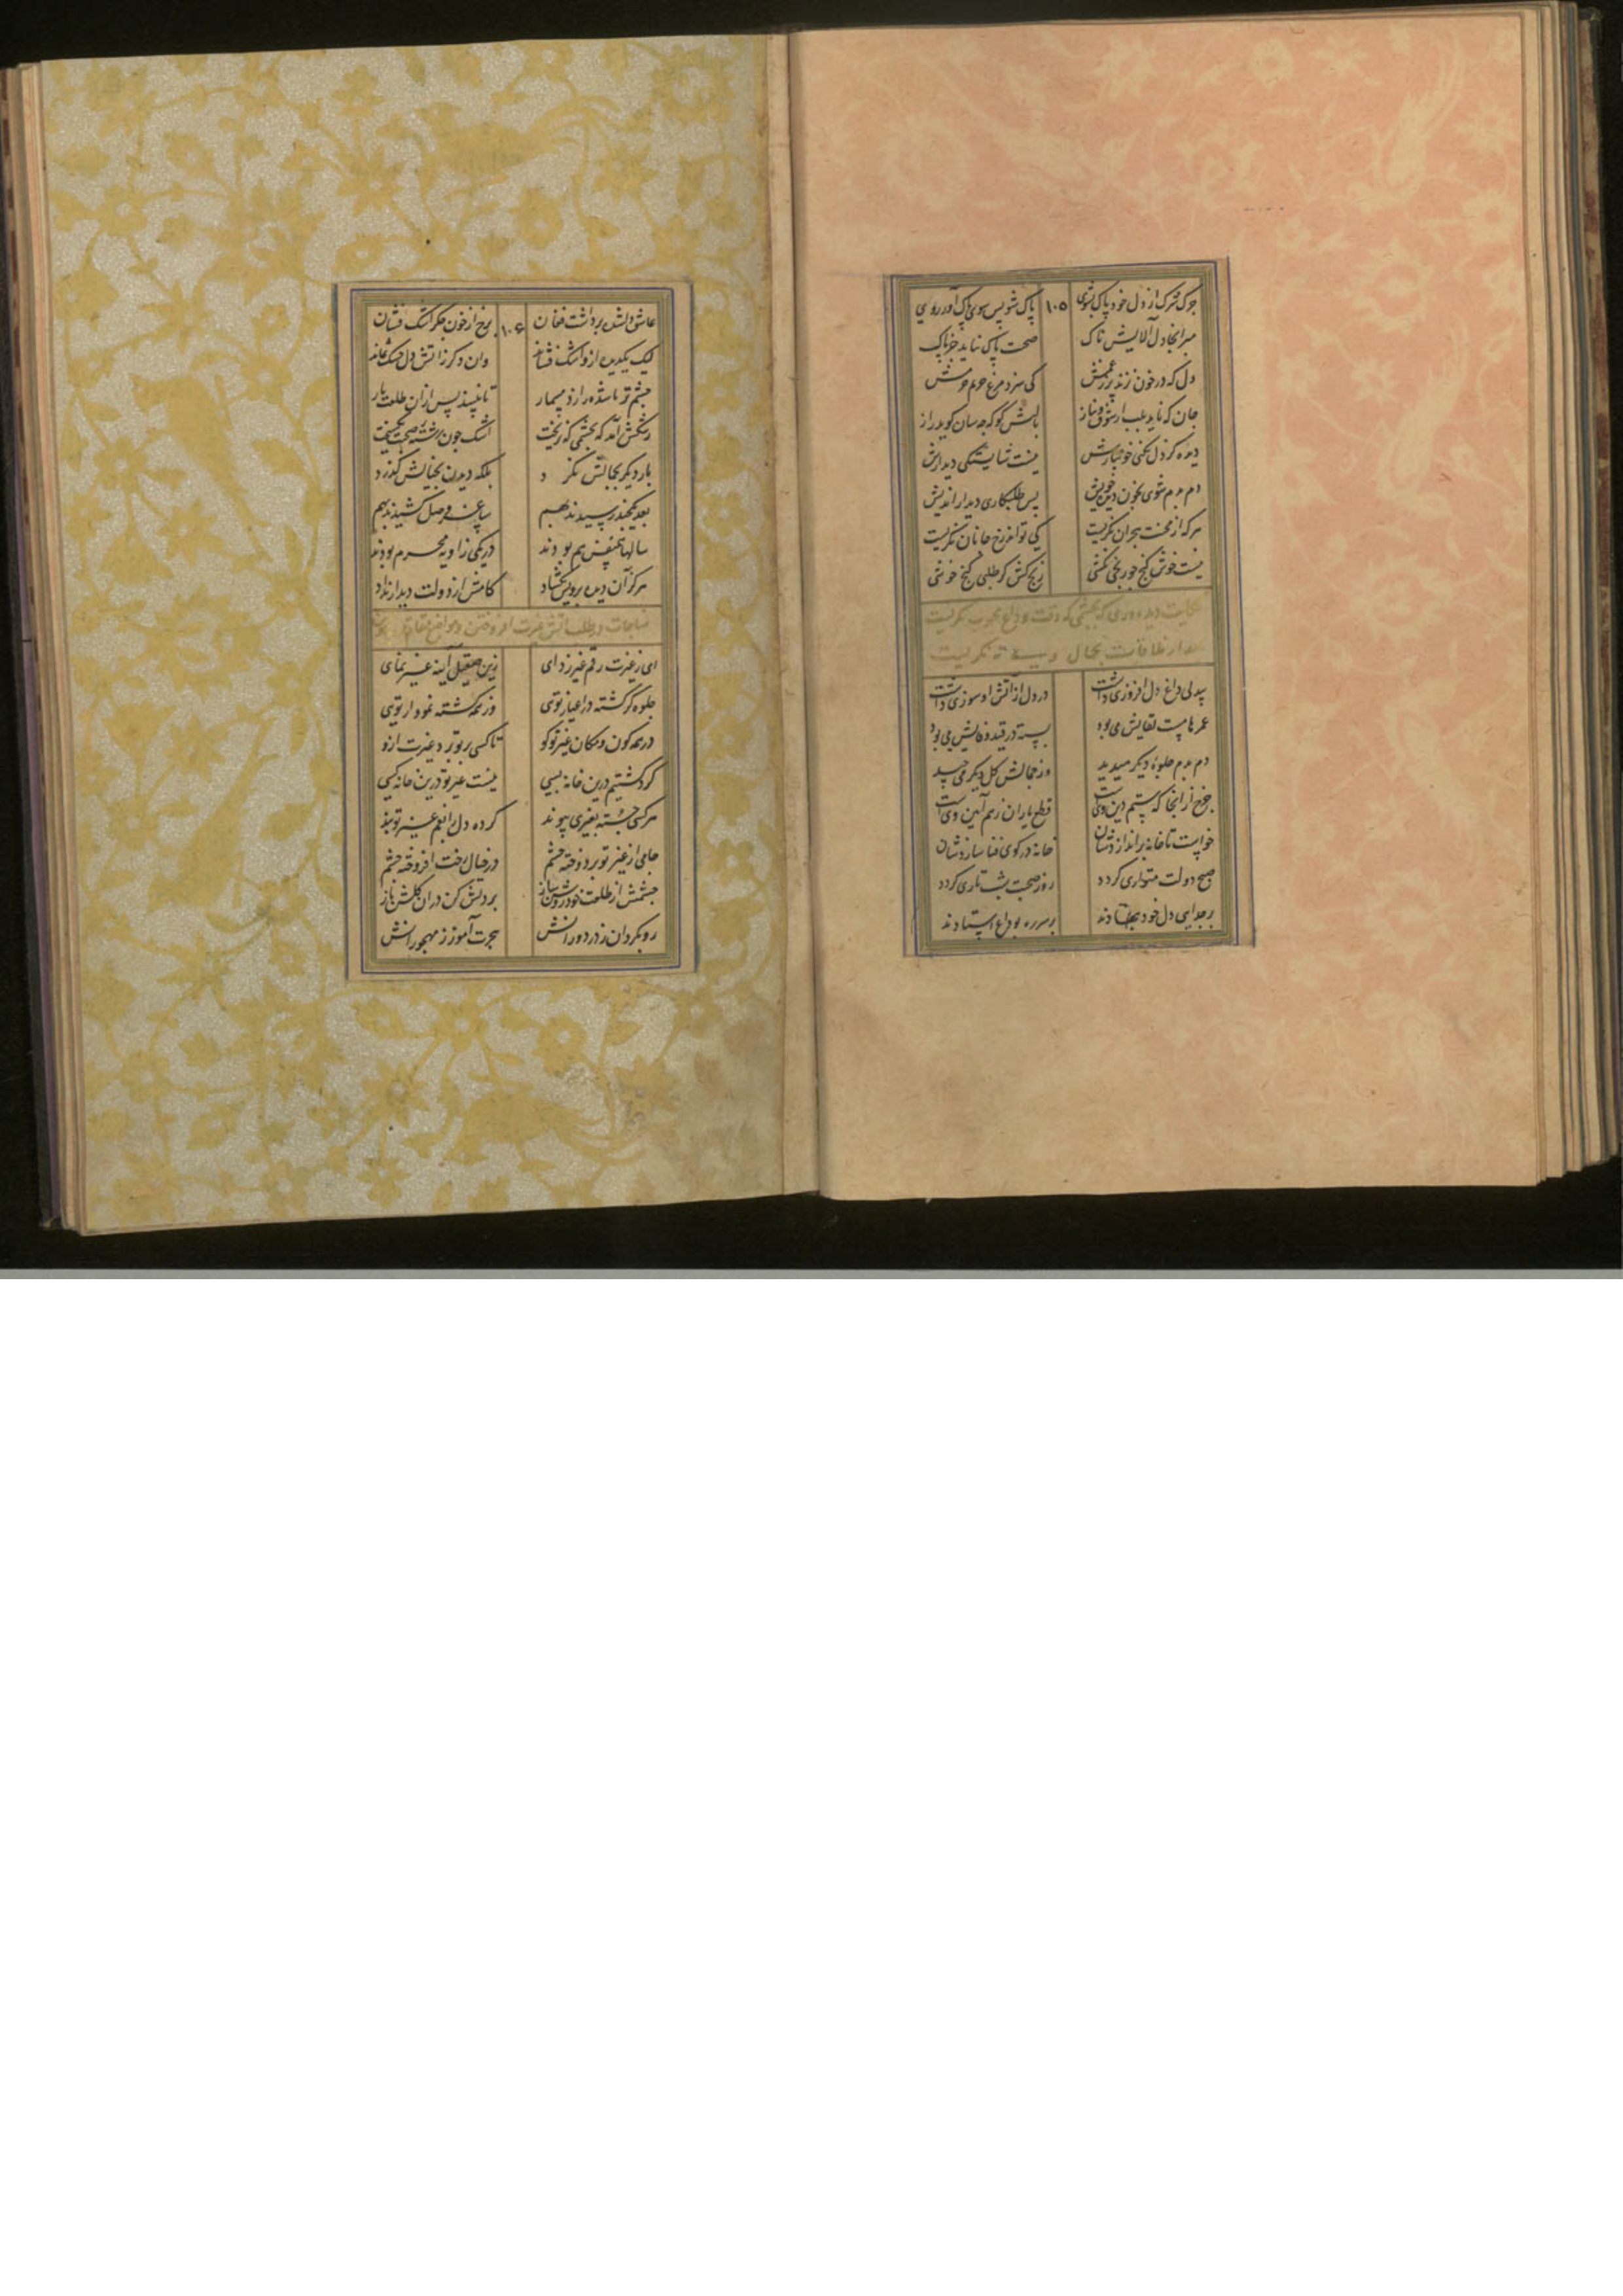 چرک شرک از دل خود پاک بشوی ۱۰۵ پاک شو پس سوی پاک آور روی
مبر آنجا دل آلایش ناک صحبت پاک نیاید جز پاک
دل که در خون نزند پر ز غمش کی سزد مرغ حریم حرمش
جان که ناید بلب از شوق و نیاز با لبش گو که چه سان گوید راز
دیده کز دل نکنی خونبارش نیست شایستگی دیدارش
دم بدم شوی بخون دیده خویش پس طلبکاری دیدار اندیش
هرکه از محنت هجران نگریست کی تواند رخ جانان نگریست
نیست خوش گنج چو رنجی نکشی رنج کش گر طلبی گنج خوشی
حکایت دیده وری که بچشمی که وقت وداع محبوب نگریست
بعد از ملاقات بجمال وی ننگریست
بیدلی داغ دل افروزی داشت در دل از آتش او سوزی داشت
عمرها مست لقایش می بود بسته در قید وفایش می بود
دم بدم جلوه دیگر میدید وز جمالش گل دیگر می چید
چرخ از آنجا که ستم دین وی است قطع یاران ز هم آیین وی است
خواست تا خانه براندازدشان خانه در کوی فنا سازدشان
صبح دولت متواری گردد روز صحبت شب تاری گردد
بر جدایی دل خود بنهادند بر سر ره بوداع استادند
عاشق دلشده برداشت فغان ۱۰۶ بر رخ از خون جگر اشک فشان
لیک یک دیده ازو اشک فشاند وان دگر ز آتش دل خشک بماند
چشم تر ناشده را زد مسمار تا نبیند پس ازان طلعت یار
رشکش آمد که بچشمی که نریخت اشک چون رشته صحبت بگسیخت
بار دیگر بجمالش نگرد بلکه دیدن بخیالش گذرد
بعد یکچند رسیدند بهم ساغر وصل کشیدند بهم
سالها همنفس هم بودند در یکی زاویه محرم بودند
هرگز آن دیده برویش نگشاد کامش از دولت دیدار نداد
مناجات در طلب آتش غیرت افروختن و مواضع
ای ز غیرت رقم غیر زدای زین صیقل آینه غیر نمای
جلوه گر گشته در اغیار تویی وز همه گشته نمودار تویی
در همه کون و مکان غیر تو کو تا کسی بر تو برد غیرت ازو
گرد گشتیم درین خانه بسی نیست غیر تو درین خانه کسی
هر کسی جسته بغیری پیوند کرده دل را بغم غیر تو بند
جامی از غیر تو بر دوخته چشم در خیال رخت افروخته چشم
چشمش از طلعت خود روشن ساز بر دلش کن در آن گلشن باز
رو بگردان ز در دورانش هجرت آموز ز مهجورانش